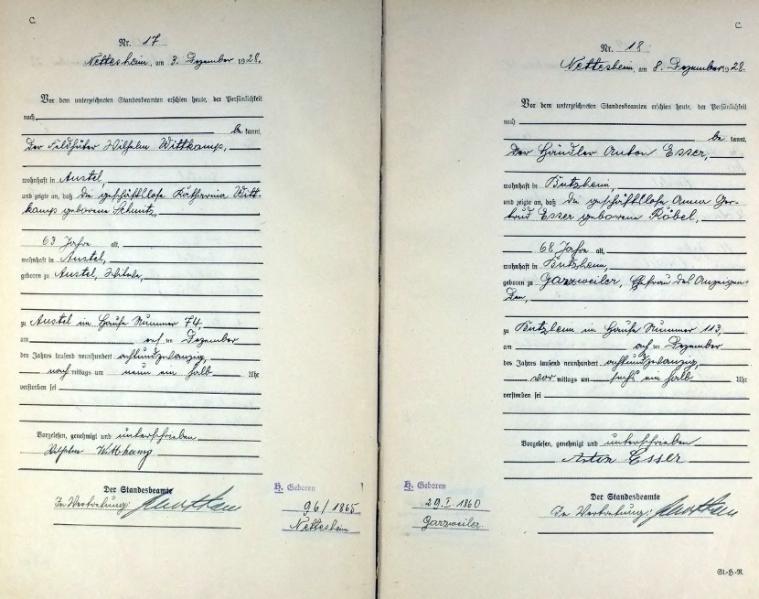 C.
Nr. 17
Nettesheim, am 3. Dezember 1928.
Vor dem unterzeichneten Standesbeamten erschien heute, der Persönlichkeit
nach
be kannt,
Der Feldhüter Wilhelm Wittkamp,
wohnhaft in Anstel,
und zeigte an, daß die geschäftslose Katharina Witt-
kamp geborene Schmitz,
63 Jahre alt,
wohnhaft in Anstel,
geboren zu Anstel, Witwe,
zu Anstel im Hause Nummer 74,
am Dezember
des Jahres tausend neunhundert achtundzwanzig,
nach mittags um neun ein halb Uhr
verstorben sei
Vorgelesen, genehmigt und unterschrieben
Wilhelm Wittkamp
Der Standesbeamte
In Vertretung:
H. Geboren
9 6 / 1865
Nettesheim
C.
Nr. 18
Nettesheim, am 8. Dezember 1928
Vor dem unterzeichneten Standesbeamten erschien heute, der Persönlichkeit
nach
be kannt,
Der Händler Anton Esser,
wohnhaft in Butzheim,
und zeigte an, daß die geschäftslose Anna Ger-
trud Esser geborene Röbel,
68 Jahre alt,
wohnhaft in Butzheim,
geboren zu Garzweiler, Ehefrau des Anzeigen-
den,
zu Butzheim im Hause Nummer 113,
am Dezember
des Jahres tausend neunhundert achtundzwanzig,
vor mittags um sechs ein halb Uhr
verstorben sei
Vorgelesen, genehmigt und unterschrieben
Anton Esser
Der Standesbeamte
In Vertretung:
H. Geboren
29. I. 1860
Garzweiler
St.-H.-R.